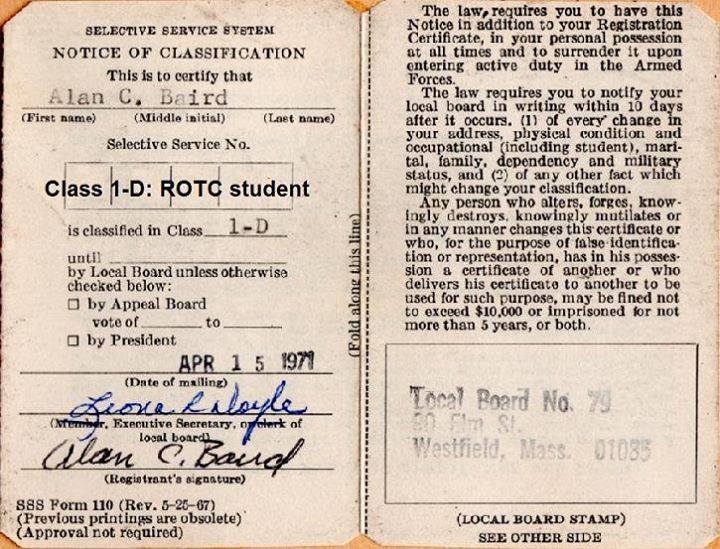 SELECTIVE SERVICE SYSTEM
NOTICE OF CLASSIFICATION
This is to certify that
Alan C. Baird
(First name) (Middle initial) (Last name)
Selective Service No.
Class 1-D: ROTC student
is classified in Class 1-D
until
by Local Board unless otherwise
checked below:
☐ by Appeal Board
vote of to
☐ by President
APR 15 1971
(Date of mailing)
(Member, Executive Secretary, or clerk of
local board)
Alan C. Baird
(Registrant's signature)
SSS Form 110 (Rev. 5-25-67)
(Previous printings are obsolete)
(Approval not required)
(Fold along this line)
The law requires you to have this
Notice in addition to your Registration
Certificate, in your personal possession
at all times and to surrender it upon
entering active duty in the Armed
Forces.
The law requires you to notify your
local board in writing within 10 days
after it occurs, (1) of every change in
your address, physical condition and
occupational (including student), mari-
tal, family, dependency and military
status, and (2) of any other fact which
might change your classification.
Any person who alters, forges, know-
ingly destroys, knowingly mutilates or
in any manner changes this certificate or
who, for the purpose of false identifica-
tion or representation, has in his posses-
sion a certificate of another or who
delivers his certificate to another to be
used for such purpose, may be fined not
to exceed $10,000 or imprisoned for not
more than 5 years, or both.
Local Board No. 79
90 Elm St.
Westfield, Mass. 01085
(LOCAL BOARD STAMP)
SEE OTHER SIDE